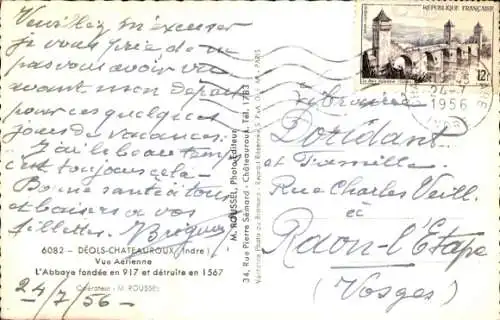 Veuillez m'excuser
je vous prie de ne
pas vous avoir vu
avant mon départ
pour ces quelques
jours de vacances.
J'ai le beau temps
c'est toujours cela
Bonne santé à tous
et baisers à vos
fillettes.
6082 - DÉOLS-CHATEAUROUX (Indre)
Vue Aérienne
L'Abbaye fondée en 917 et détruite en 1567
Opérateur - M. ROUSSEL
24/7/56
M. ROUSSEL, Photo-Editeur
34, Rue Pierre Sémard - Châteauroux, Tél. 1783
Véritable Photo au Bromure - Reprod. Réservée
RÉPUBLIQUE FRANÇAISE
12F
24-7
1956
Librairie
Doridant
et Famille
Rue Charles Weill
à
Raon-l'Étape
(Vosges)